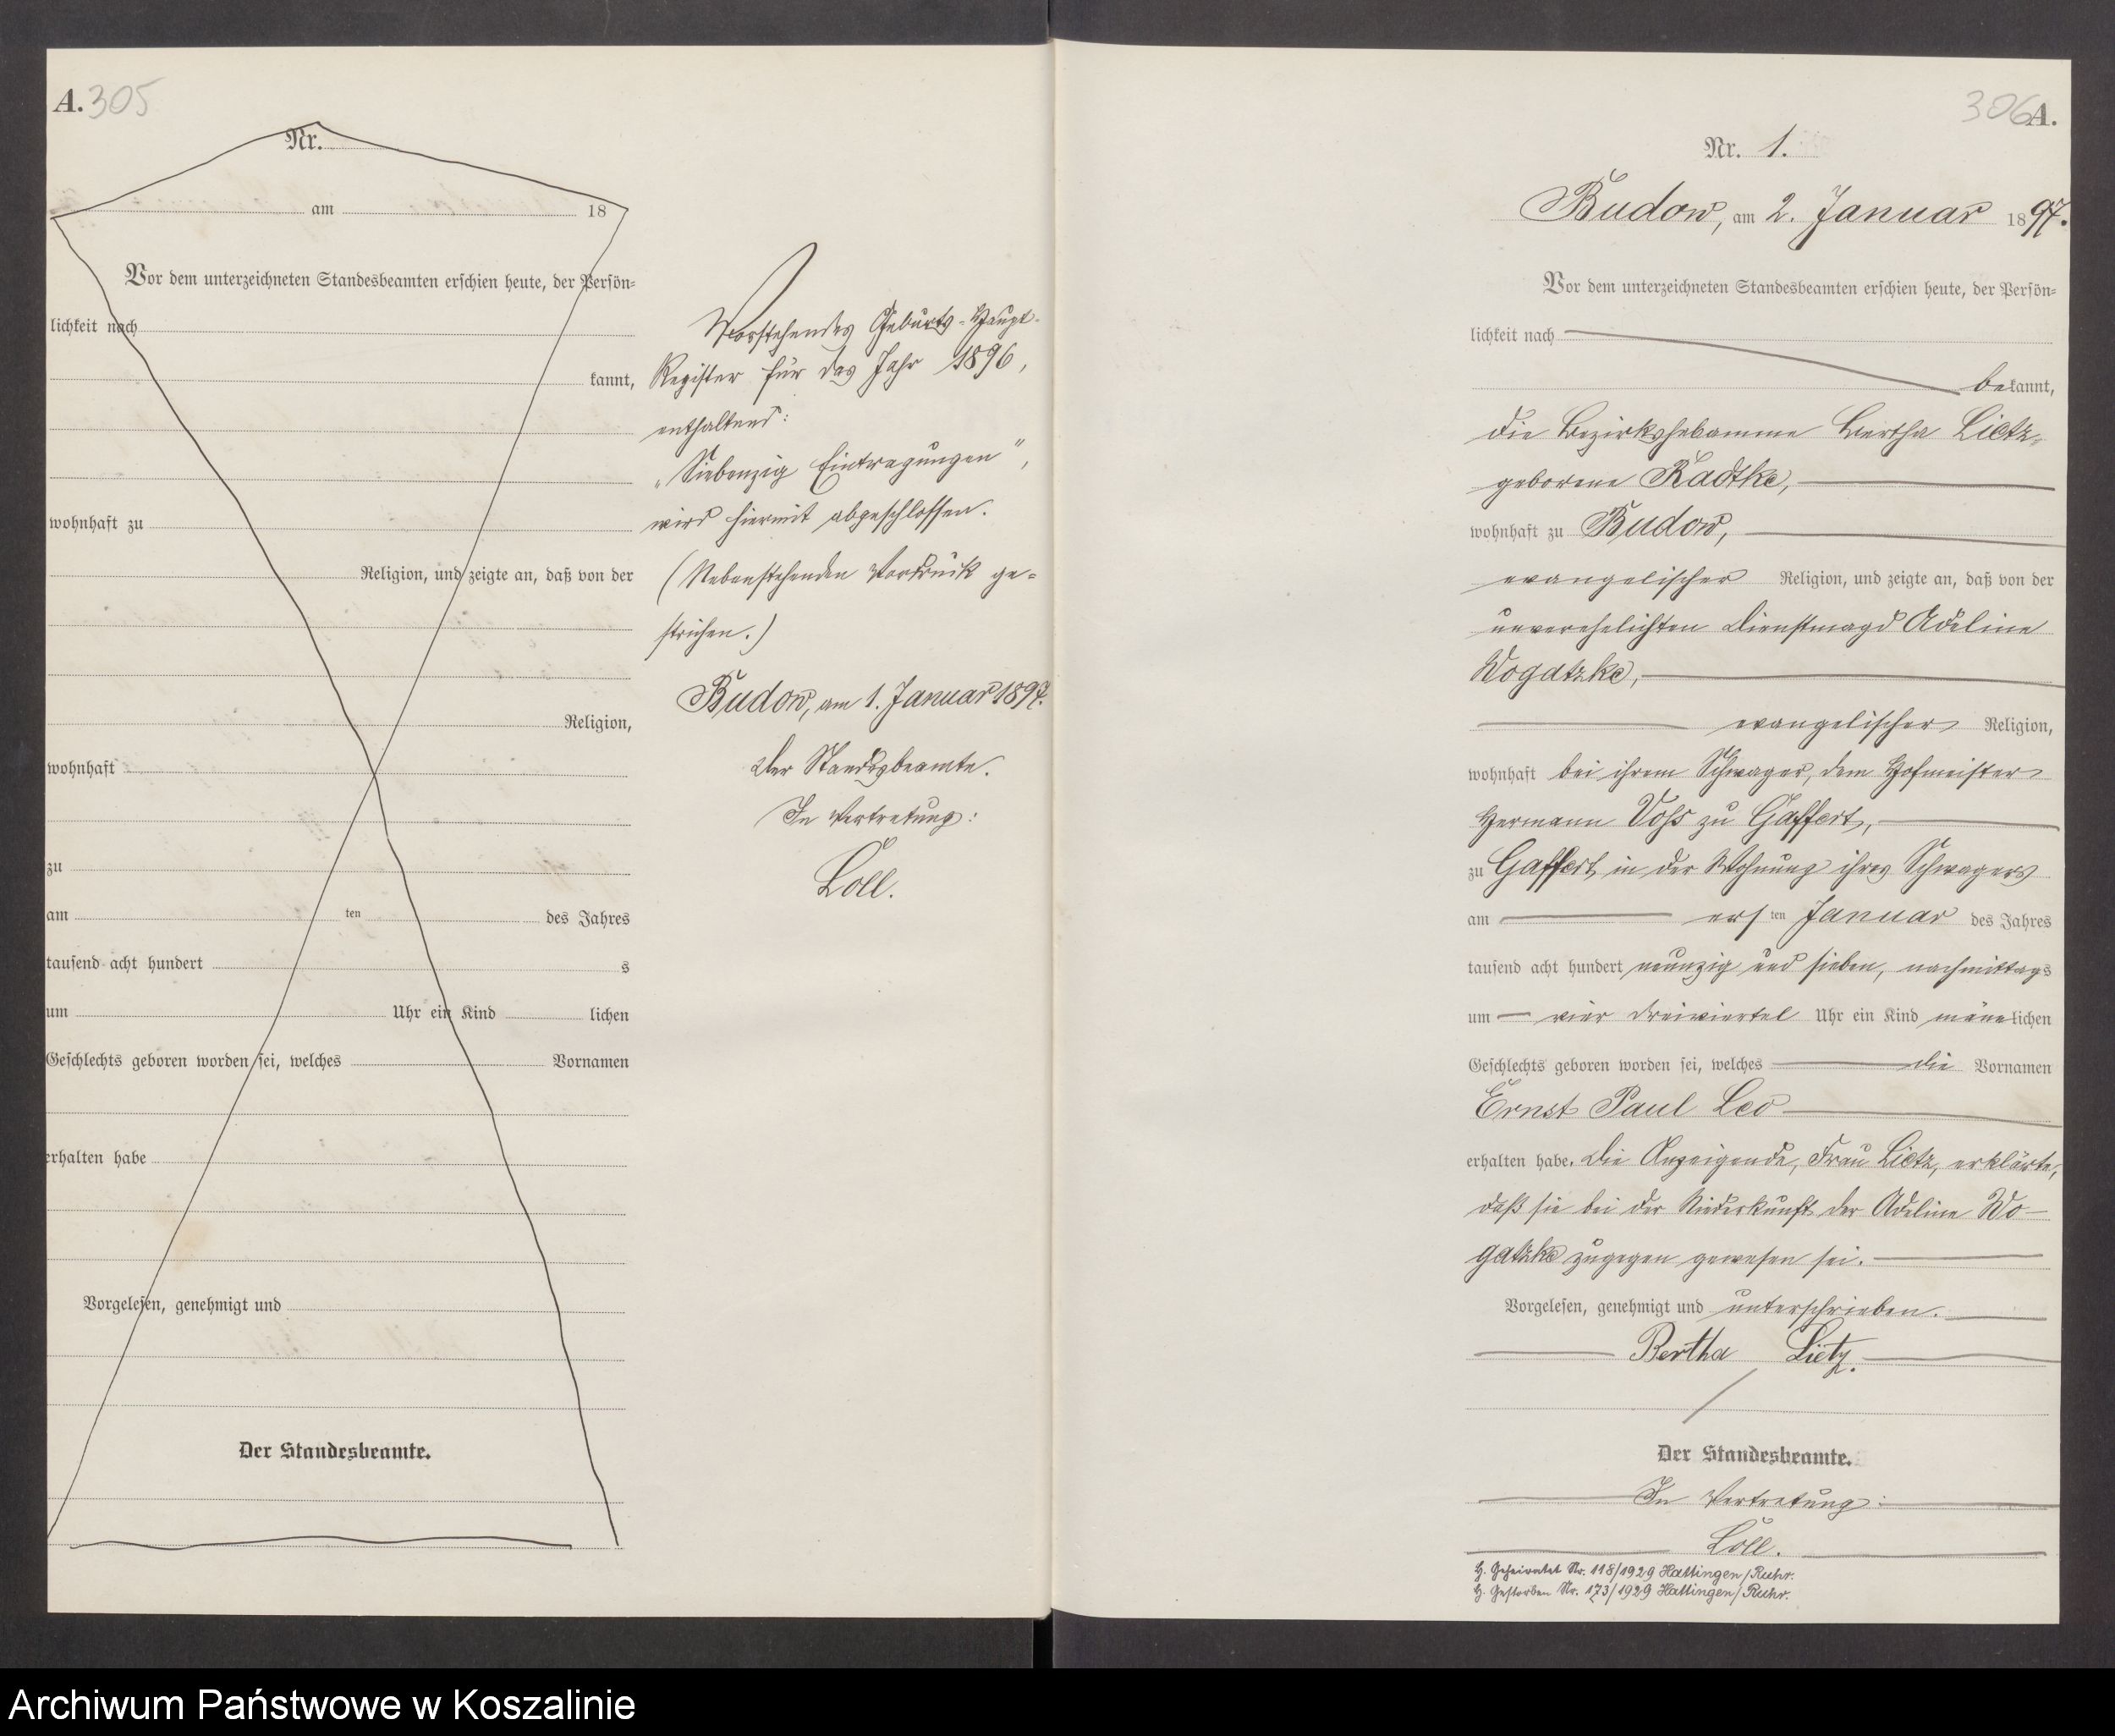 A. 305
Nr.
am 18
Vor dem unterzeichneten Standesbeamten erschien heute, der Persön-
lichkeit nach
kannt,
wohnhaft zu
Religion, und zeigte an, daß von der
Religion,
wohnhaft
zu
am ten des Jahres
tausend acht hundert s
um Uhr ein Kind lichen
Geschlechts geboren worden sei, welches Vornamen
erhalten habe
Vorgelesen, genehmigt und
Der Standesbeamte.
Vorstehendes Geburts-Haupt-
Register für das Jahr 1896,
enthaltend:
„Siebenzig Eintragungen",
wird hiermit abgeschlossen.
(Nebenstehenden Vordruck ge-
strichen.)
Budow, am 1. Januar 1897.
Der Standesbeamte.
In Vertretung:
Löll.
306 A.
Nr. 1.
Budow, am 2. Januar 1897.
Vor dem unterzeichneten Standesbeamten erschien heute, der Persön-
lichkeit nach
bekannt,
die Bezirkshebamme Bertha Lietz,
geborene Radtke,
wohnhaft zu Budow,
evangelischer Religion, und zeigte an, daß von der
unverehelichten Dienstmagd Adeline
Wogatzke,
evangelischer Religion,
wohnhaft bei ihrem Schwager, dem Hofmeister
Hermann Voss zu Gaffert,
zu Gaffert, in der Wohnung ihres Schwagers
am ersten Januar des Jahres
tausend acht hundert neunzig und sieben, nachmittags
um vier dreiviertel Uhr ein Kind männlichen
Geschlechts geboren worden sei, welches die Vornamen
Ernst Paul Leo
erhalten habe. Die Anzeigende, Frau Lietz, erklärte,
daß sie bei der Niederkunft der Adeline Wo-
gatzke zugegen gewesen sei.
Vorgelesen, genehmigt und unterschrieben.
Bertha Lietz.
Der Standesbeamte.
In Vertretung:
Löll.
H. Geheiratet Nr. 118/1929 Hattingen/Ruhr.
H. Gestorben Nr. 173/1929 Hattingen/Ruhr.
Archiwum Państwowe w Koszalinie